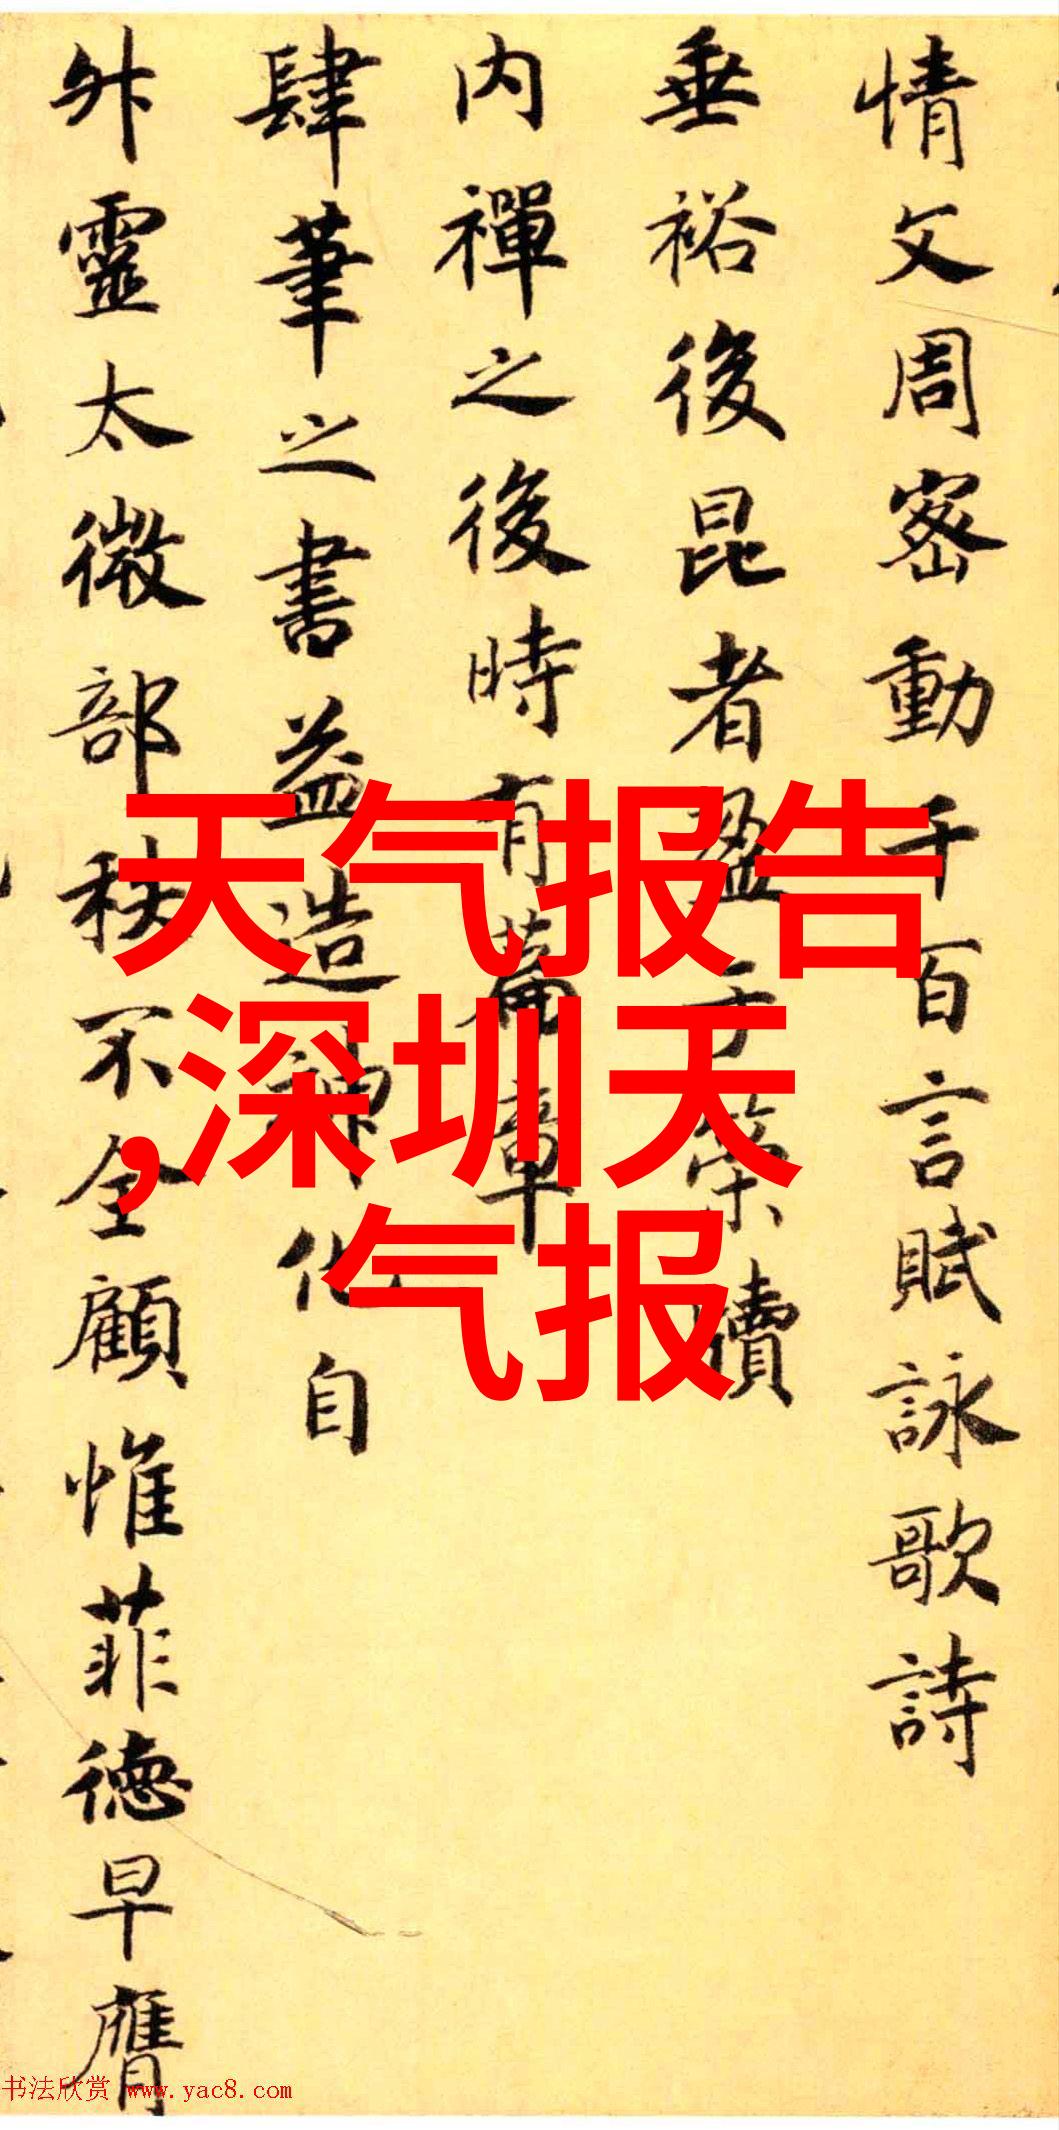 情文周密動千百言賦詠歌詩
垂裕後昆者盈于策牘
内禪之後時有篇章
肆筆之書益造神化自
外靈太微部秩不全顧惟菲德早膺
天气报告
,深圳天
气报
书法欣赏 www.yac8.com